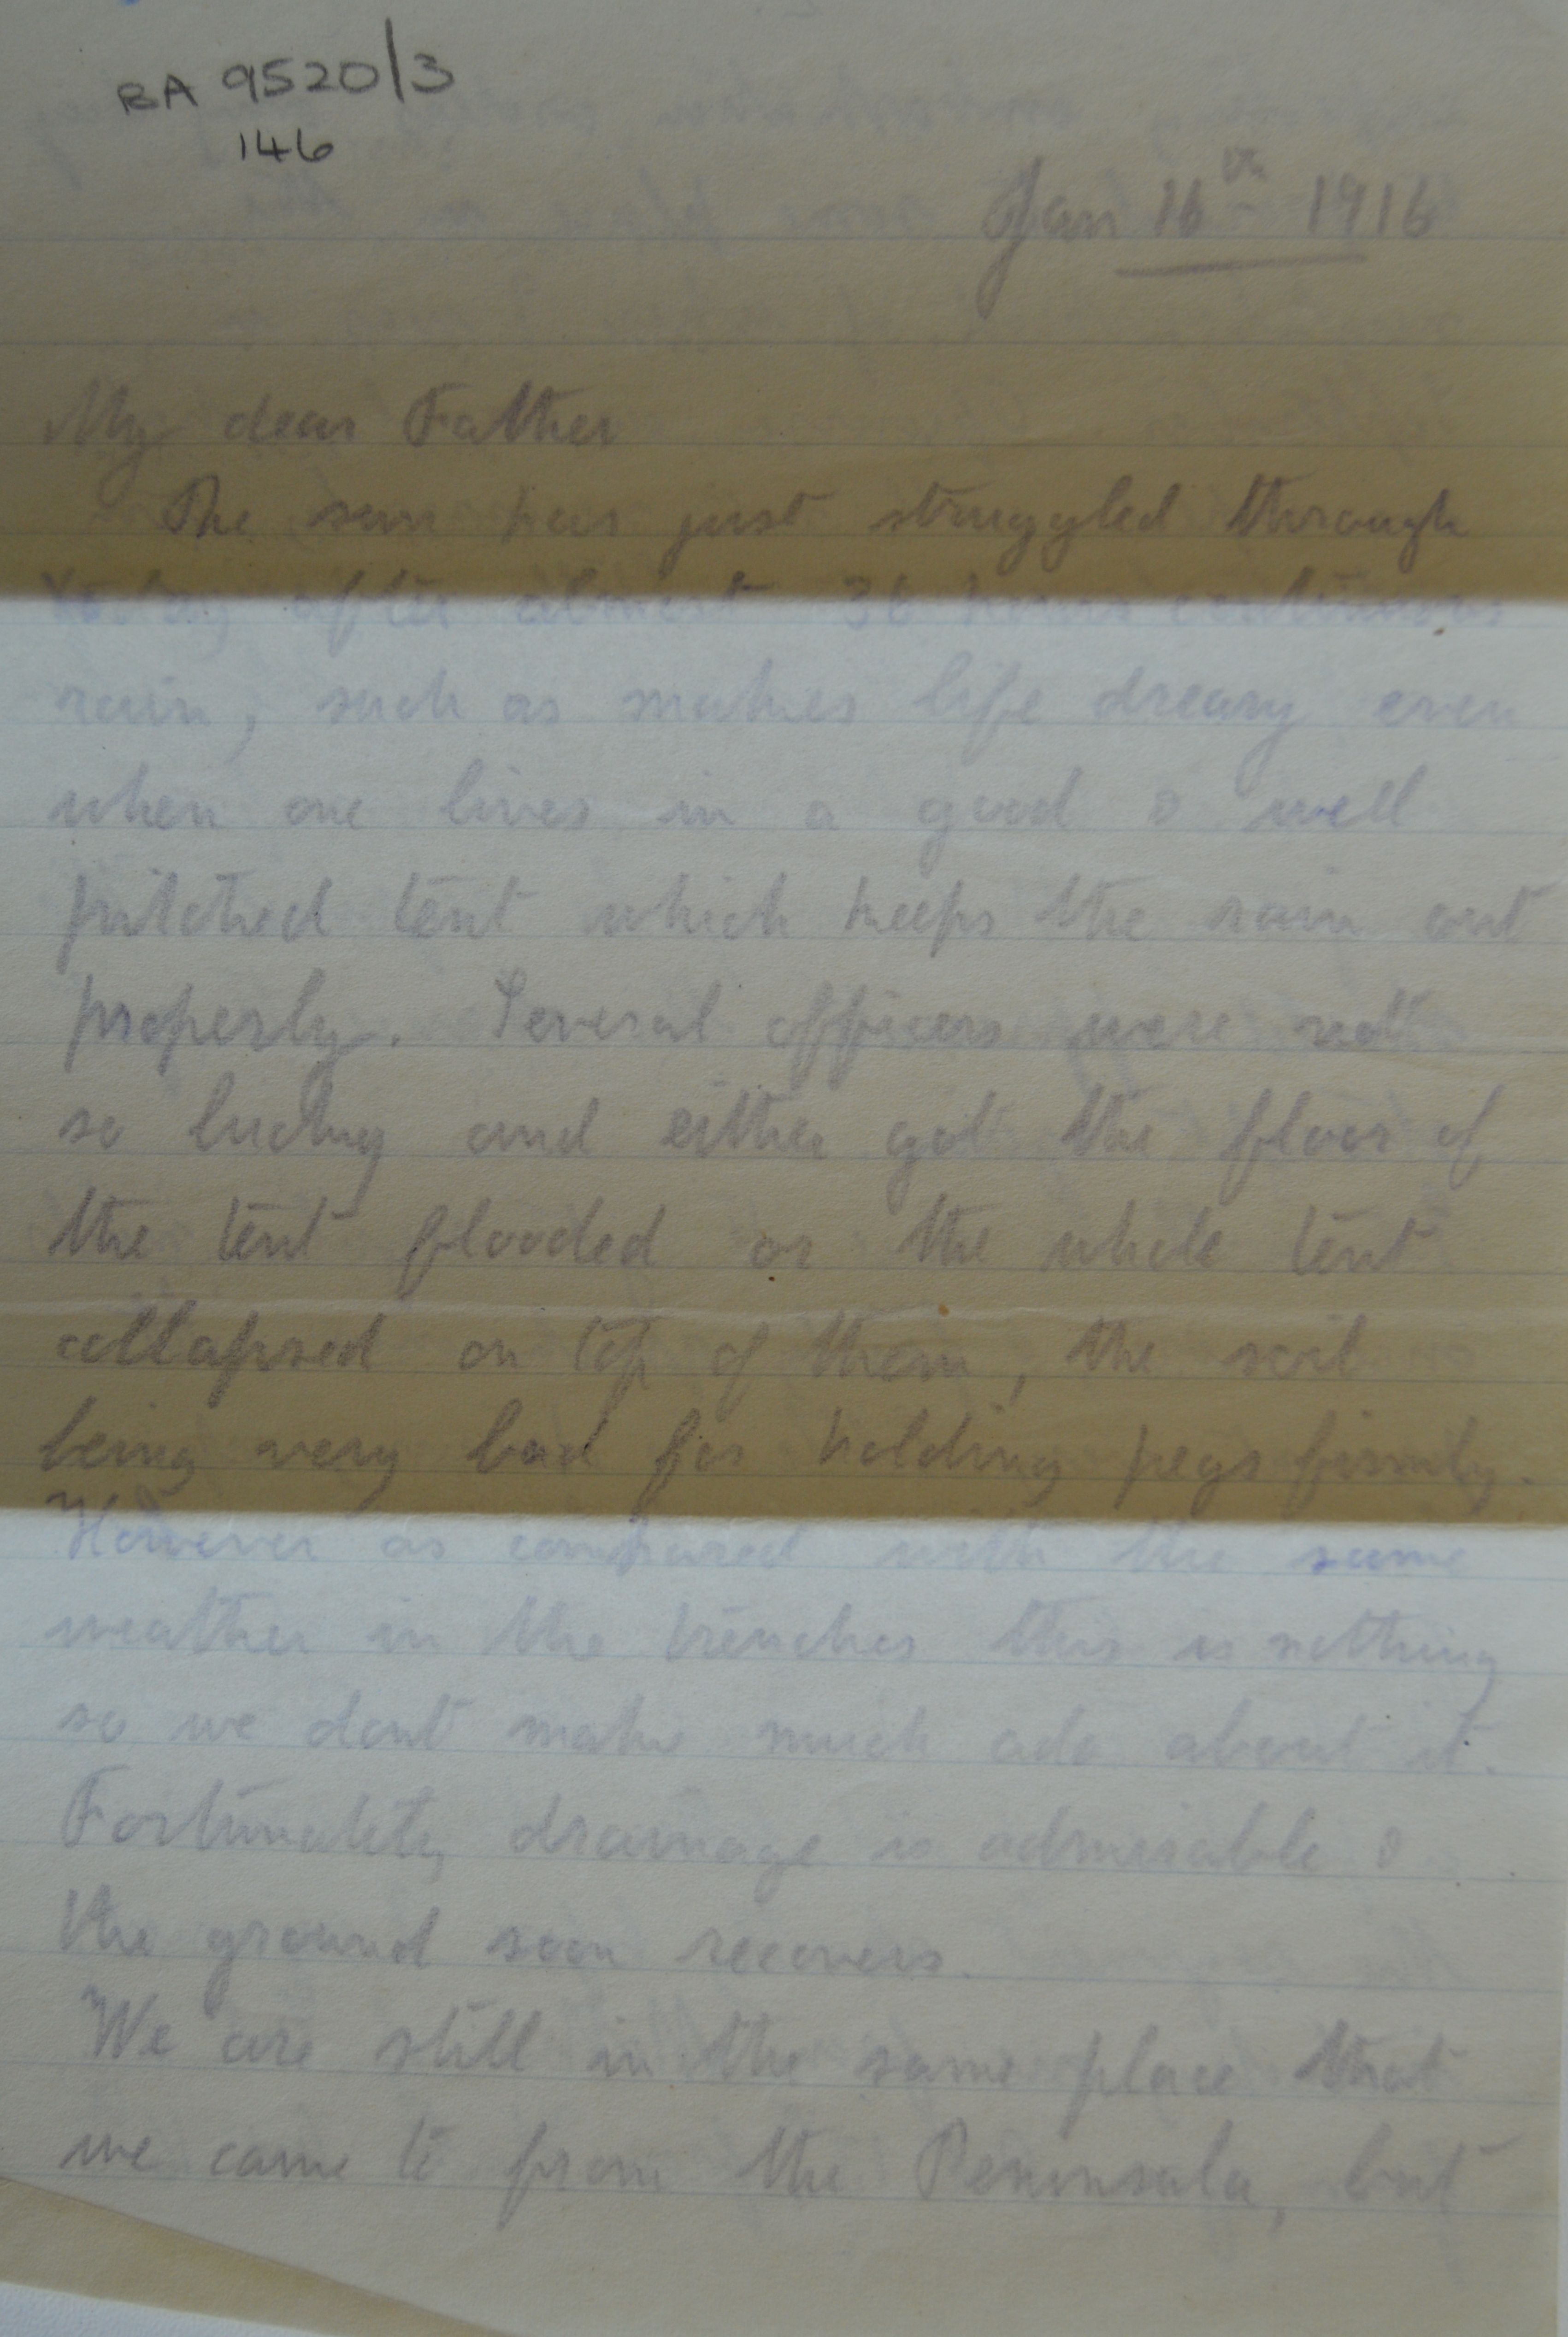 BA 9520/3
146
Jan 16th - 1916
My dear Father
The sun has just struggled through
to-day after almost 36 hours continuous
rain, such as makes life dreary even
when one lives in a good & well
pitched tent which keeps the rain out
properly. Several officers were not
so lucky and either got the floor of
the tent flooded or the whole tent
collapsed on top of them, the soil
being very bad for holding pegs firmly.
However as compared with the same
weather in the trenches this is nothing
so we dont make much ado about it.
Fortunately drainage is admirable &
the ground soon recovers.
We are still in the same place that
we came to from the Peninsula, but